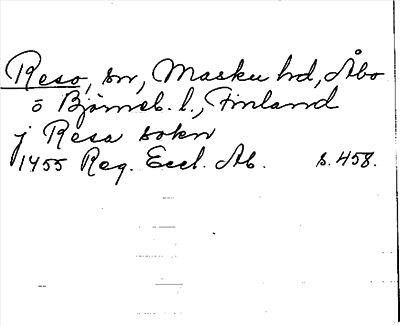 Reso, sn, Masku hd, Åbo
o Björneb. l., Finland
j Resa sokn
1455 Reg. Eccl. Ab. s. 458.